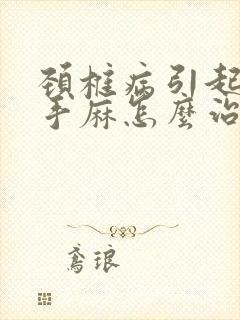 颈椎病引起
手麻怎麼治
鸢琅